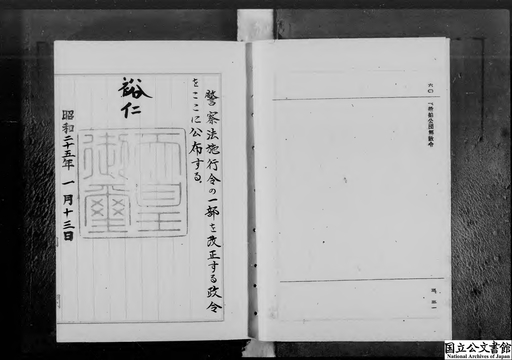 警察法施行令の一部を改正する政令
をここに公布する。
裕仁
天皇
御璽
昭和二十五年一月十三日
国立公文書館
National Archives of Japan